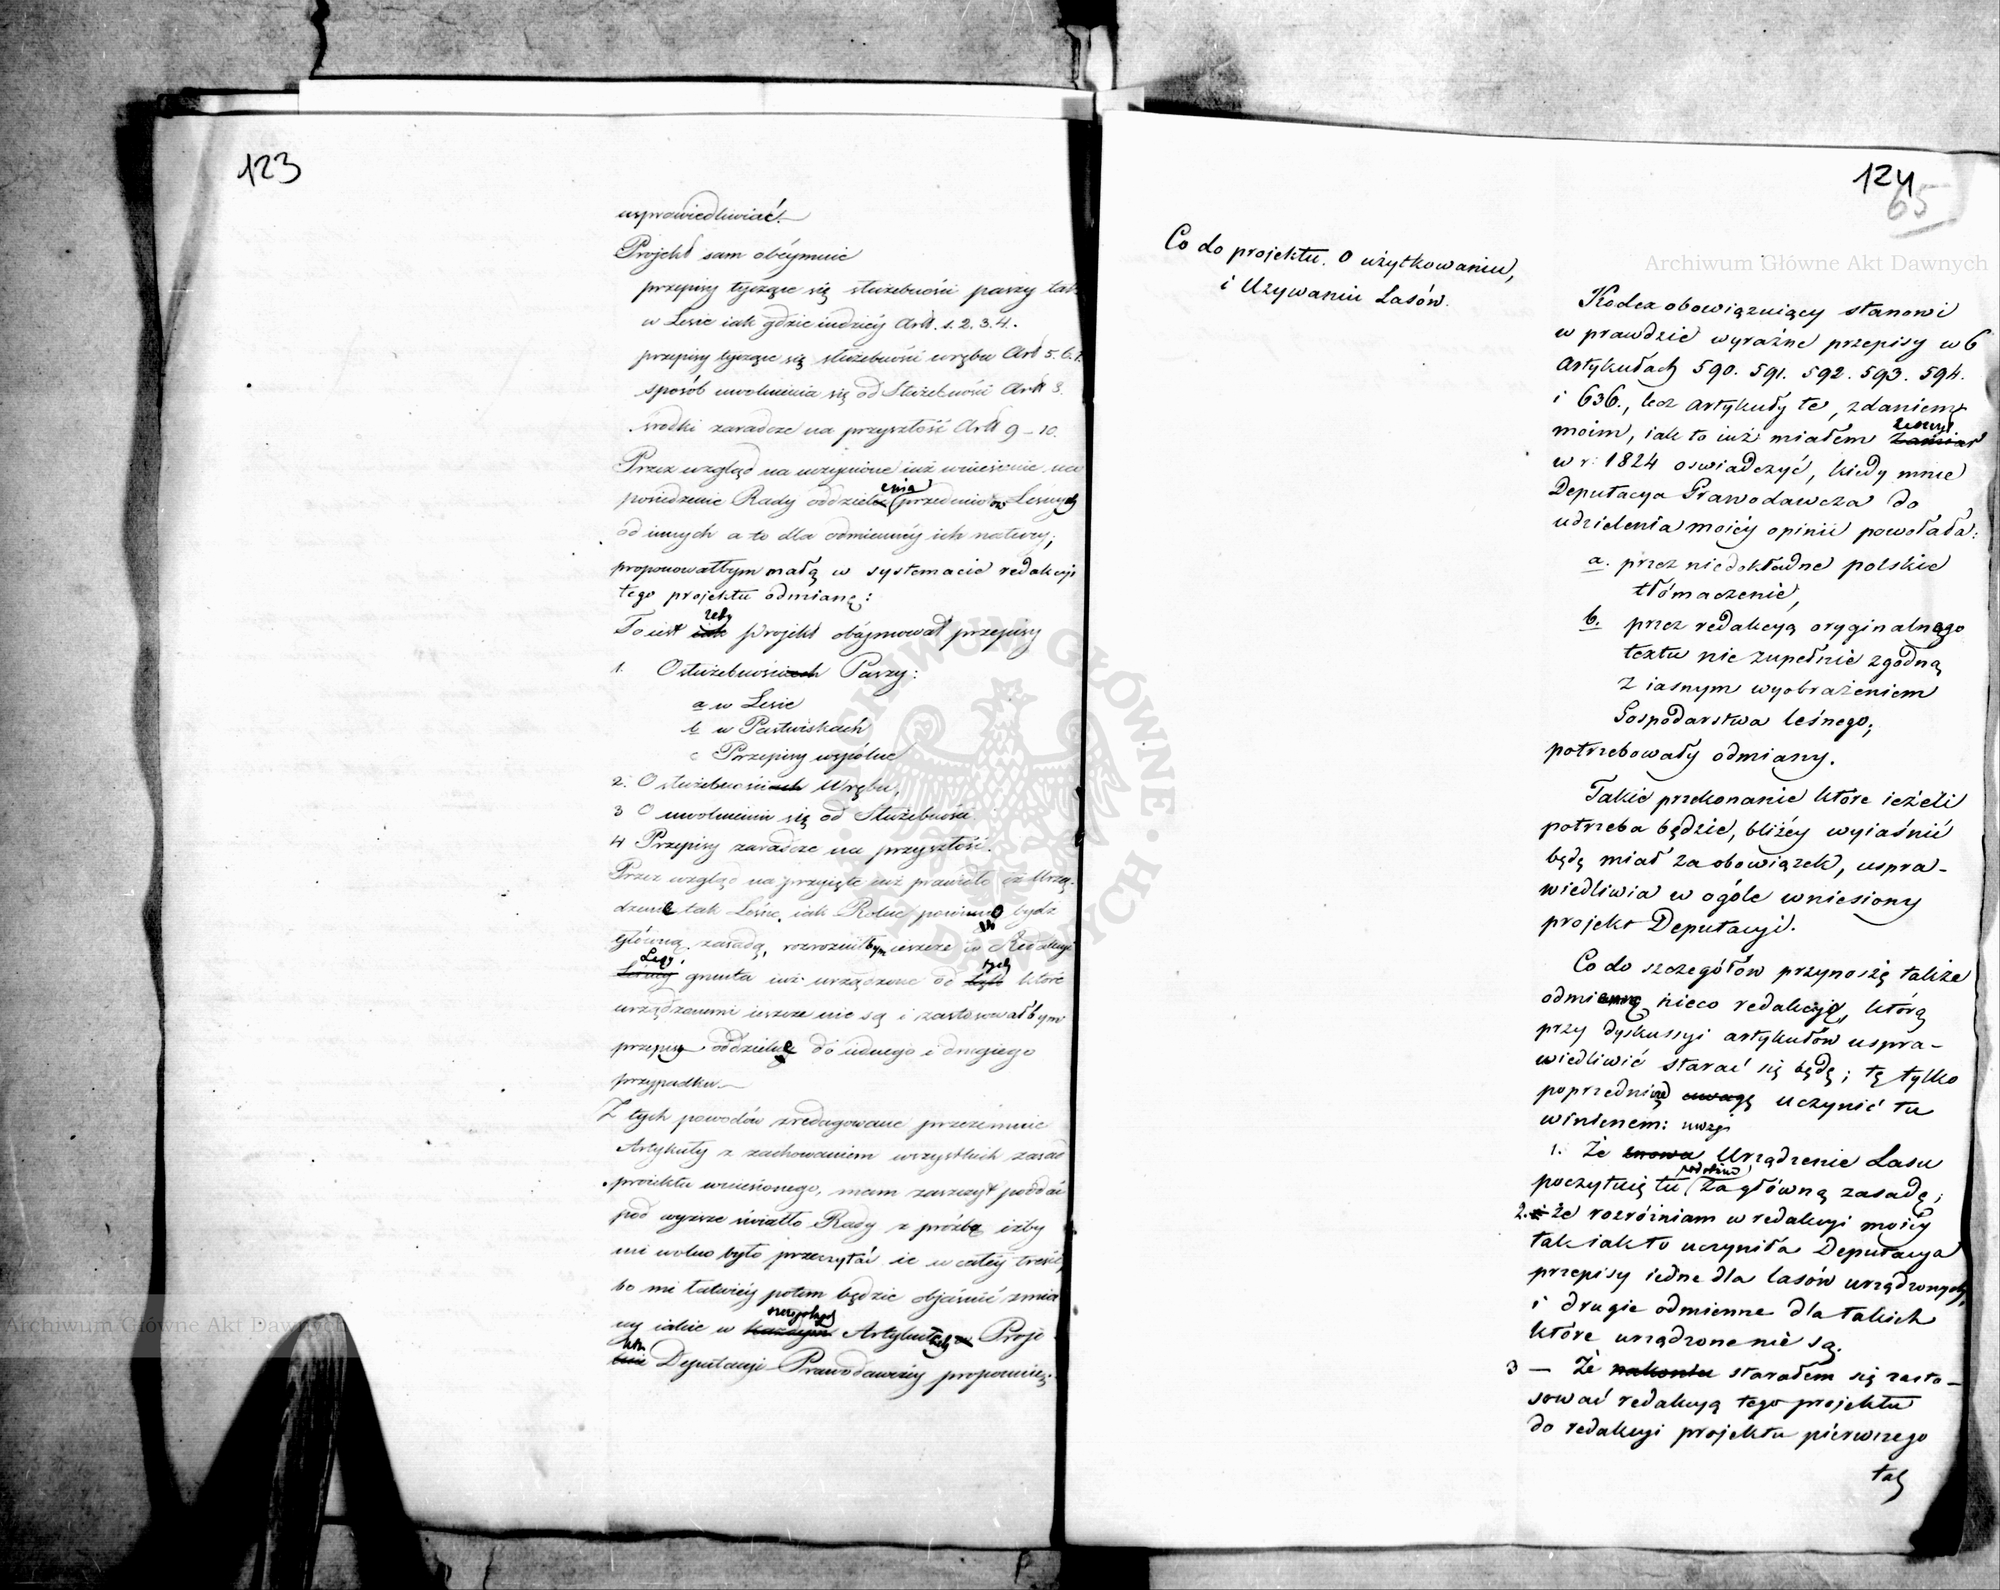 123
usprawiedliwiać.
Projekt sam obéymuie
przepisy tyczące się służebności paszy tak
w Lesie iak gdzie indziéy Artt. 1. 2. 3. 4.
przepisy tyczące się służebności wrębu Artt 5. 6. 7.
sposób uwolnienia się od Służebności Artt 8.
środki zaradcze na przyszłość Artt 9 – 10.
Przez wzgląd na uczynione iuż wniesienie na
posiedzenie Rady oddziel enia przedmiotów Leśnych
od innych a to dla odmiennéy ich natury;
proponowałbym małą w systemacie redakcji
tego projektu odmianę:
To iest żeby projekt obéjmował przepisy
1. O służebnościach Paszy:
a w Lesie
b w Pastwiskach
c Przepisy wspólne
2. O służebnościach Wrębu,
3 O uwolnieniu się od Służebności
4 Przepisy zaradcze na przyszłość.
Przez wzgląd na przyięte iuż prawidło iż Urzą-
dzenie tak Leśne, iak Rolne powinno bydź
główną zasadą, rozróżniłbym ieszcze w Redakcji
grunta iuż urządzone od tych które
urządzonemi ieszcze nie są i zastosowałbym
przepisy oddzielne do iednego i drugiego
przypadku.
Z tych powodów zredagowane przezemnie
Artykuły z zachowaniem wszystkich zasad
proiektu wniesionego, mam zaszczyt poddać
pod wyższe światło Rady z prośbą iżby
mi wolno było przeczytać ie w całéy treści,
bo mi łatwiéy potem będzie objaśnić zmia
ny iakie w każdym Artykułach Proje
ktu Deputacyi Prawodawczéy proponuię.
124
65
Co do projektu. O użytkowaniu,
i Używaniu Lasów.
Kodex obowiązuiący stanowi
w prawdzie wyraźne przepisy w 6
Artykułach 590. 591. 592. 593. 594.
i 636., lecz artykuły te, zdaniem
moim, iak to iuż miałem zaszczyt
w r: 1824 oswiadczyć, kiedy mnie
Deputacya Prawodawcza do
udzielenia moiéy opinii powołała:
a. przez niedokładne polskie
tłómaczenie,
b. przez redakcyą oryginalnego
textu nie zupełnie zgodną
z iasnym wyobrażeniem
Gospodarstwa leśnego;
potrzebowały odmiany.
Takie przekonanie które ieżeli
potrzeba będzie, bliżéy wyiaśnić
będę miał za obowiązek, uspra-
wiedliwia w ogóle wniesiony
projekt Deputacyi.
Co do szczegółów przynoszę także
odmienną nieco redakcyę, którą
przy dyskussyi artykułów uspra-
wiedliwić starać się będę; tę tylko
poprzednio uwagę uczynić tu
winienem: uwagę
1. Że znowu Urządzenie Lasu
poczytuię tu podobnie za główną zasadę;
2. i że rozróżniam w redakcyi moiéy
tak iak to uczyniła Deputacya
przepisy iedne dla lasów urządzonych,
i drugie odmienne dla takich
które urządzone nie są.
3 – Że nakoniec starałem się zasto-
sować redakcyą tego projektu
do redakcyi projektu piérwszego
tak
Archiwum Główne Akt Dawnych
Archiwum Główne Akt Dawnych
ARCHIWUM GŁÓWNE AKT DAWNYCH